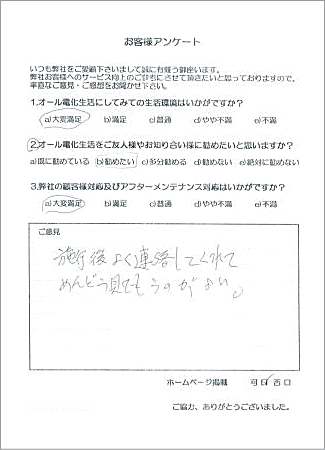 お客様アンケート
いつも弊社をご愛顧下さいまして誠に有難う御座います。
弊社お客様へのサービス向上のご参考にさせて頂きたいと思っておりますので、
率直なご意見・ご感想をお聞かせ下さい。
1.オール電化生活にしてみての生活環境はいかがですか?
a)大変満足 b)満足 c)普通 d)やや不満 e)不満
2.オール電化生活をご友人様やお知り合い様に勧めたいと思いますか?
a)既に勧めている b)勧めたい c)多分勧める d)勧めない e)絶対に勧めない
3.弊社の顧客様対応及びアフターメンテナンス対応はいかがですか?
a)大変満足 b)満足 c)普通 d)やや不満 e)不満
ご意見
施行後よく連絡してくれて
めんどう見てもらうのがよい。
ホームページ掲載 可 否
ご協力、ありがとうございました。